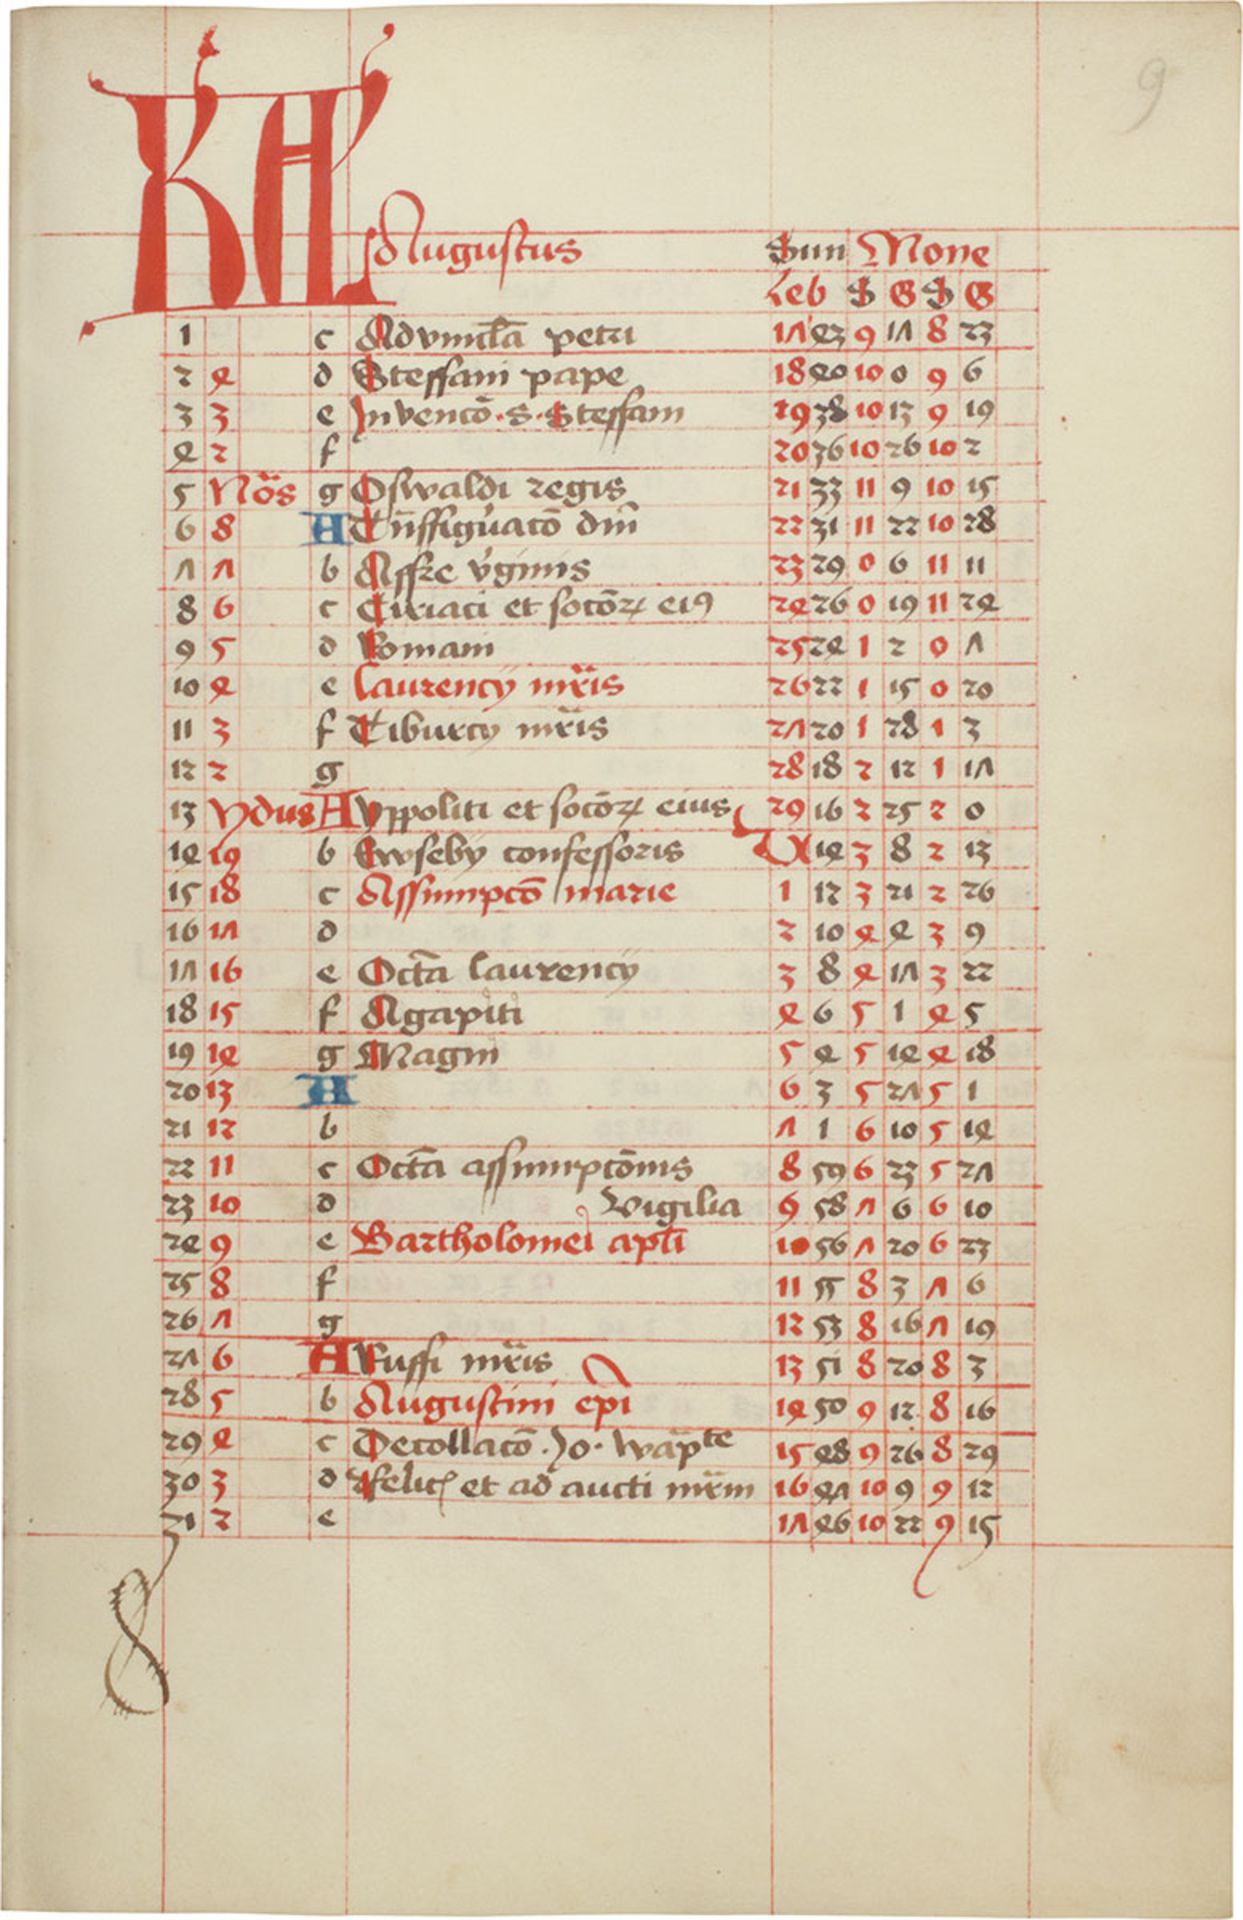 9
KA Augustus Sun Mone
Leb S G S G
1 c Advincla petri 17 43 9 17 8 23
2 4 d Steffani pape 18 40 10 0 9 6
3 3 e Invencō · S · Steffani 19 38 10 13 9 19
4 2 f 20 36 10 26 10 2
5 Nōs g Oswaldi regis 21 33 11 9 10 15
6 8 A Tnsfigūacō dm̄ 22 31 11 22 10 28
7 7 b Affre v̓ginis 23 29 0 6 11 11
8 6 c Ciriaci et socōꝝ eiꝯ 24 26 0 19 11 24
9 5 d Romani 25 24 1 2 0 7
10 4 e Laurencÿ mr̄is 26 22 1 15 0 20
11 3 f Tiburcÿ mr̄is 27 20 1 28 1 3
12 2 g 28 18 2 12 1 17
13 Ydus A Yppoliti et socōꝝ eius 29 16 2 25 2 0
14 19 b Ewsebÿ confessoris 14 3 8 2 13
15 18 c Assumpcō marie 1 12 3 21 2 26
16 17 d 2 10 4 4 3 9
17 16 e Octā Laurencÿ 3 8 4 17 3 22
18 15 f Agapiti 4 6 5 1 4 5
19 14 g Magni 5 4 5 14 4 18
20 13 A 6 3 5 27 5 1
21 12 b 7 1 6 10 5 14
22 11 c Octā assumpcōnis 8 59 6 23 5 27
23 10 d Vigilia 9 58 7 6 6 10
24 9 e Bartholomei apl̄i 10 56 7 20 6 23
25 8 f 11 55 8 3 7 6
26 7 g 12 53 8 16 7 19
27 6 A Ruffi mr̄is 13 51 8 20 8 3
28 5 b Augustini ep̄i 14 50 9 12 8 16
29 4 c Decollacō · Jo · wāpte 15 48 9 26 8 29
30 3 d Felicꝭ et ad aucti mr̄m 16 47 10 9 9 12
31 2 e 17 46 10 22 9 15